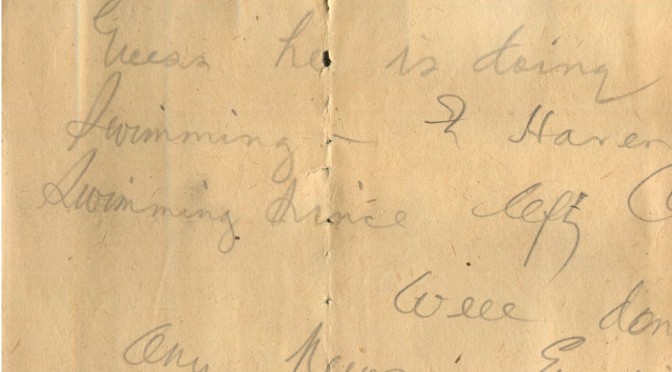 Guess he is doing
Swimming – I Haven
Swimming since left C
Well don
Any News